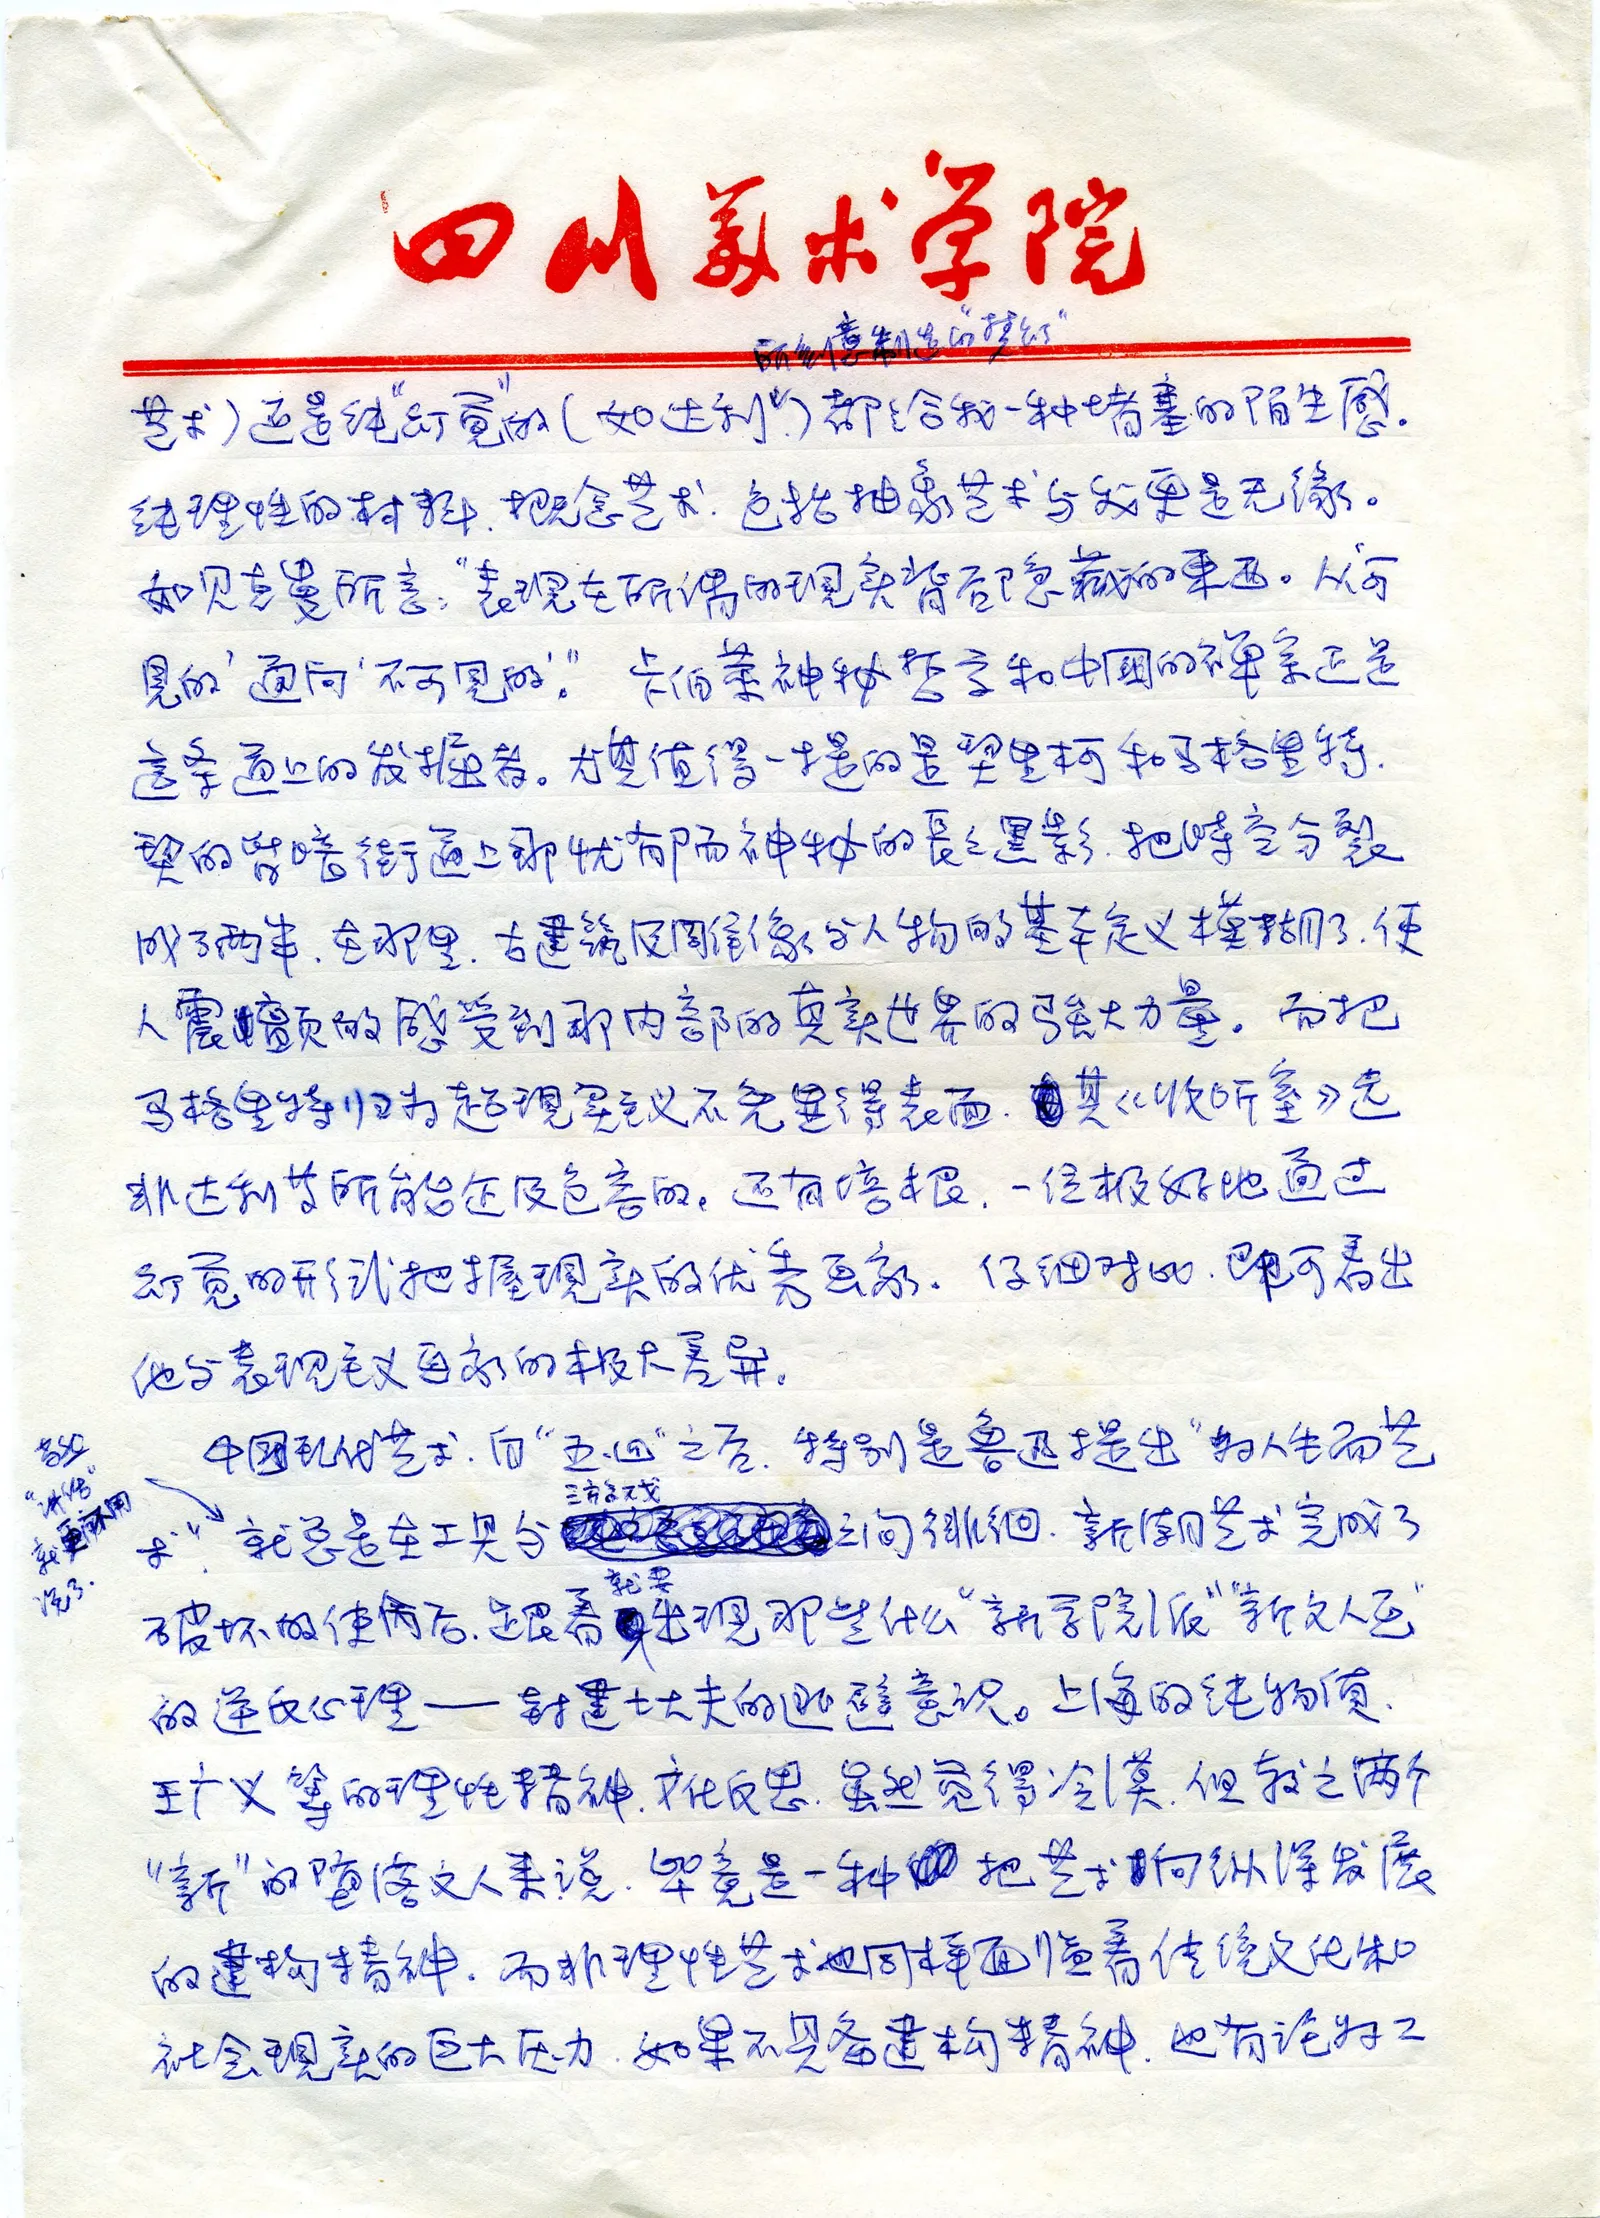 四川美术学院
所刻意制造的"梦幻"
艺术）还是纯"幻觉"的（如达利）都给我一种堵塞的陌生感。
纯理性的材料、概念艺术、包括抽象艺术与我更是无缘。
如贝克曼所言："表现在所谓的现实背后隐藏的东西。从'可
见的'通向'不可见的'。" 卡伯莱神秘哲学和中国的禅宗正是
这条道上的发掘者。尤其值得一提的是契里柯和马格里特，
契的背暗街道上那忧郁而神秘的長長黑影，把時空分裂
成了两半，在那里，古建筑及周雕像与人物的基本定义模糊了，使
人震颤的感受到那内部的真实世界的强大力量。而把
马格里特归为超现实主义不免显得表面，其《收听室》远
非达利等所能企及包容的。还有培根，一位极好地通过
幻觉的形式把握现实的优秀画家。仔细对比，即可看出
他与表现主义画家的极大差异。
中国现代艺术，自"五.四"之后，特别是鲁迅提出"为人生而艺
术"，就总是在工具与
游戏
之间徘徊，新潮艺术完成了
就更不用
说了。
破坏的使命后，跟着
就要
出现那些什么"新学院派""新文人画"
的逆反心理——封建士大夫的逃避意识。上海的纯物质、
王广义等的理性精神、文化反思，虽然觉得冷漠，但较之两个
"新"的堕落文人来说，毕竟是一种把艺术向纵深发展
的建构精神，而非理性艺术也同样面临着传统文化和
社会现实的巨大压力，如果不具备建构精神，也有沦为工